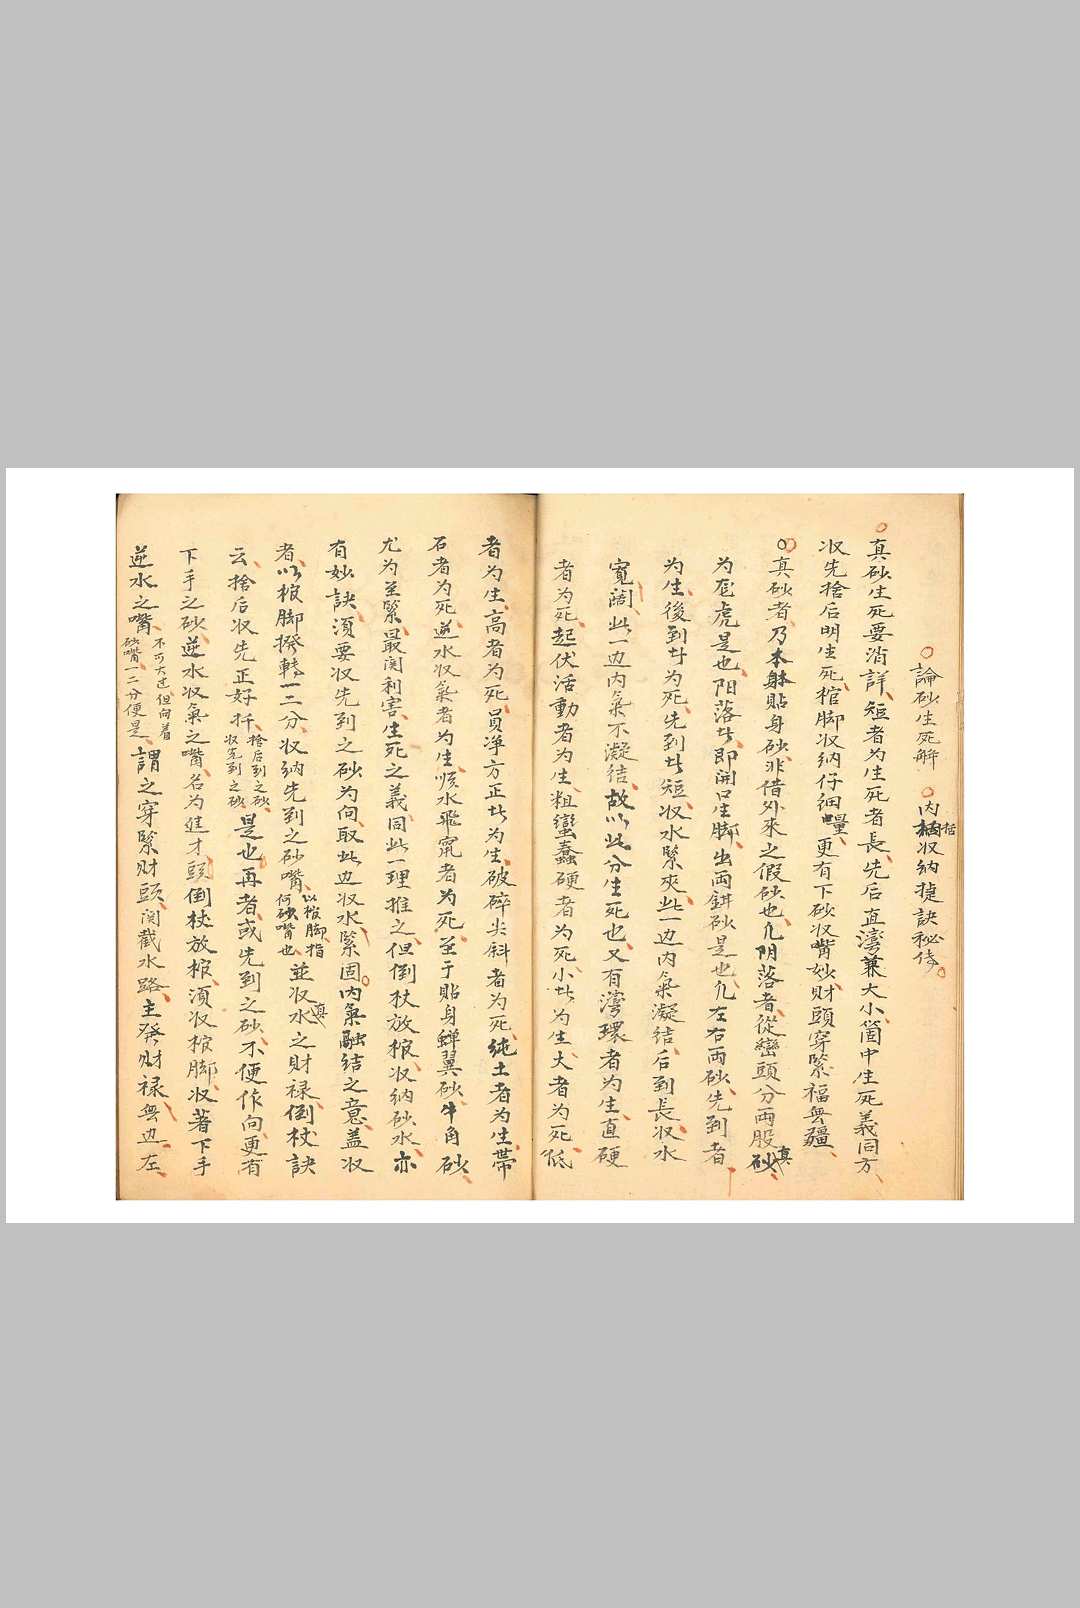 論砂生死解 内括収納捷訣秘傳
真砂生死要消詳短者为生死者長先后直灣兼大小箇中生死義同方
収先捨后明生死棺脚収納仔細量更有下砂収嘴妙財頭穿緊福無疆
真砂者乃本躰貼身砂非借外來之假砂也凡阴落者從巒頭分両股真砂
为龙虎是也阳落者即開口生脚出両鉗砂是也凡左右両砂先到者
为生後到者为死先到者短収水緊夾此一边内氣凝結后到長収水
寬濶此一边内氣不凝结故以此分生死也又有灣環者为生直硬
者为死起伏活動者为生粗蠻蠢硬者为死小者为生大者为死低
者为生高者为死員净方正者为生破碎尖斜者为死純土者为生帶
石者为死逆水収氣者为生順水飛竄者为死至于貼身蟬翼砂牛角砂
尤为至緊最関利害生死之義同此一理推之但倒杖放棺収納砂水亦
有妙訣須要収先到之砂为向取此边収水緊固内氣融結之意蓋収
者以棺脚撥轉一二分収納先到之砂嘴以棺脚指何砂嘴也並収真水之財禄倒杖訣
云捨后収先正好扦捨后到之砂収先到之砂是也再者或先到之砂不便作向更有
下手之砂逆水収氣之嘴名为進才頭倒杖放棺須収棺脚収著下手
逆水之嘴不可大过但向着砂嘴一二分便是謂之穿緊财頭関截水路主發财禄無边左